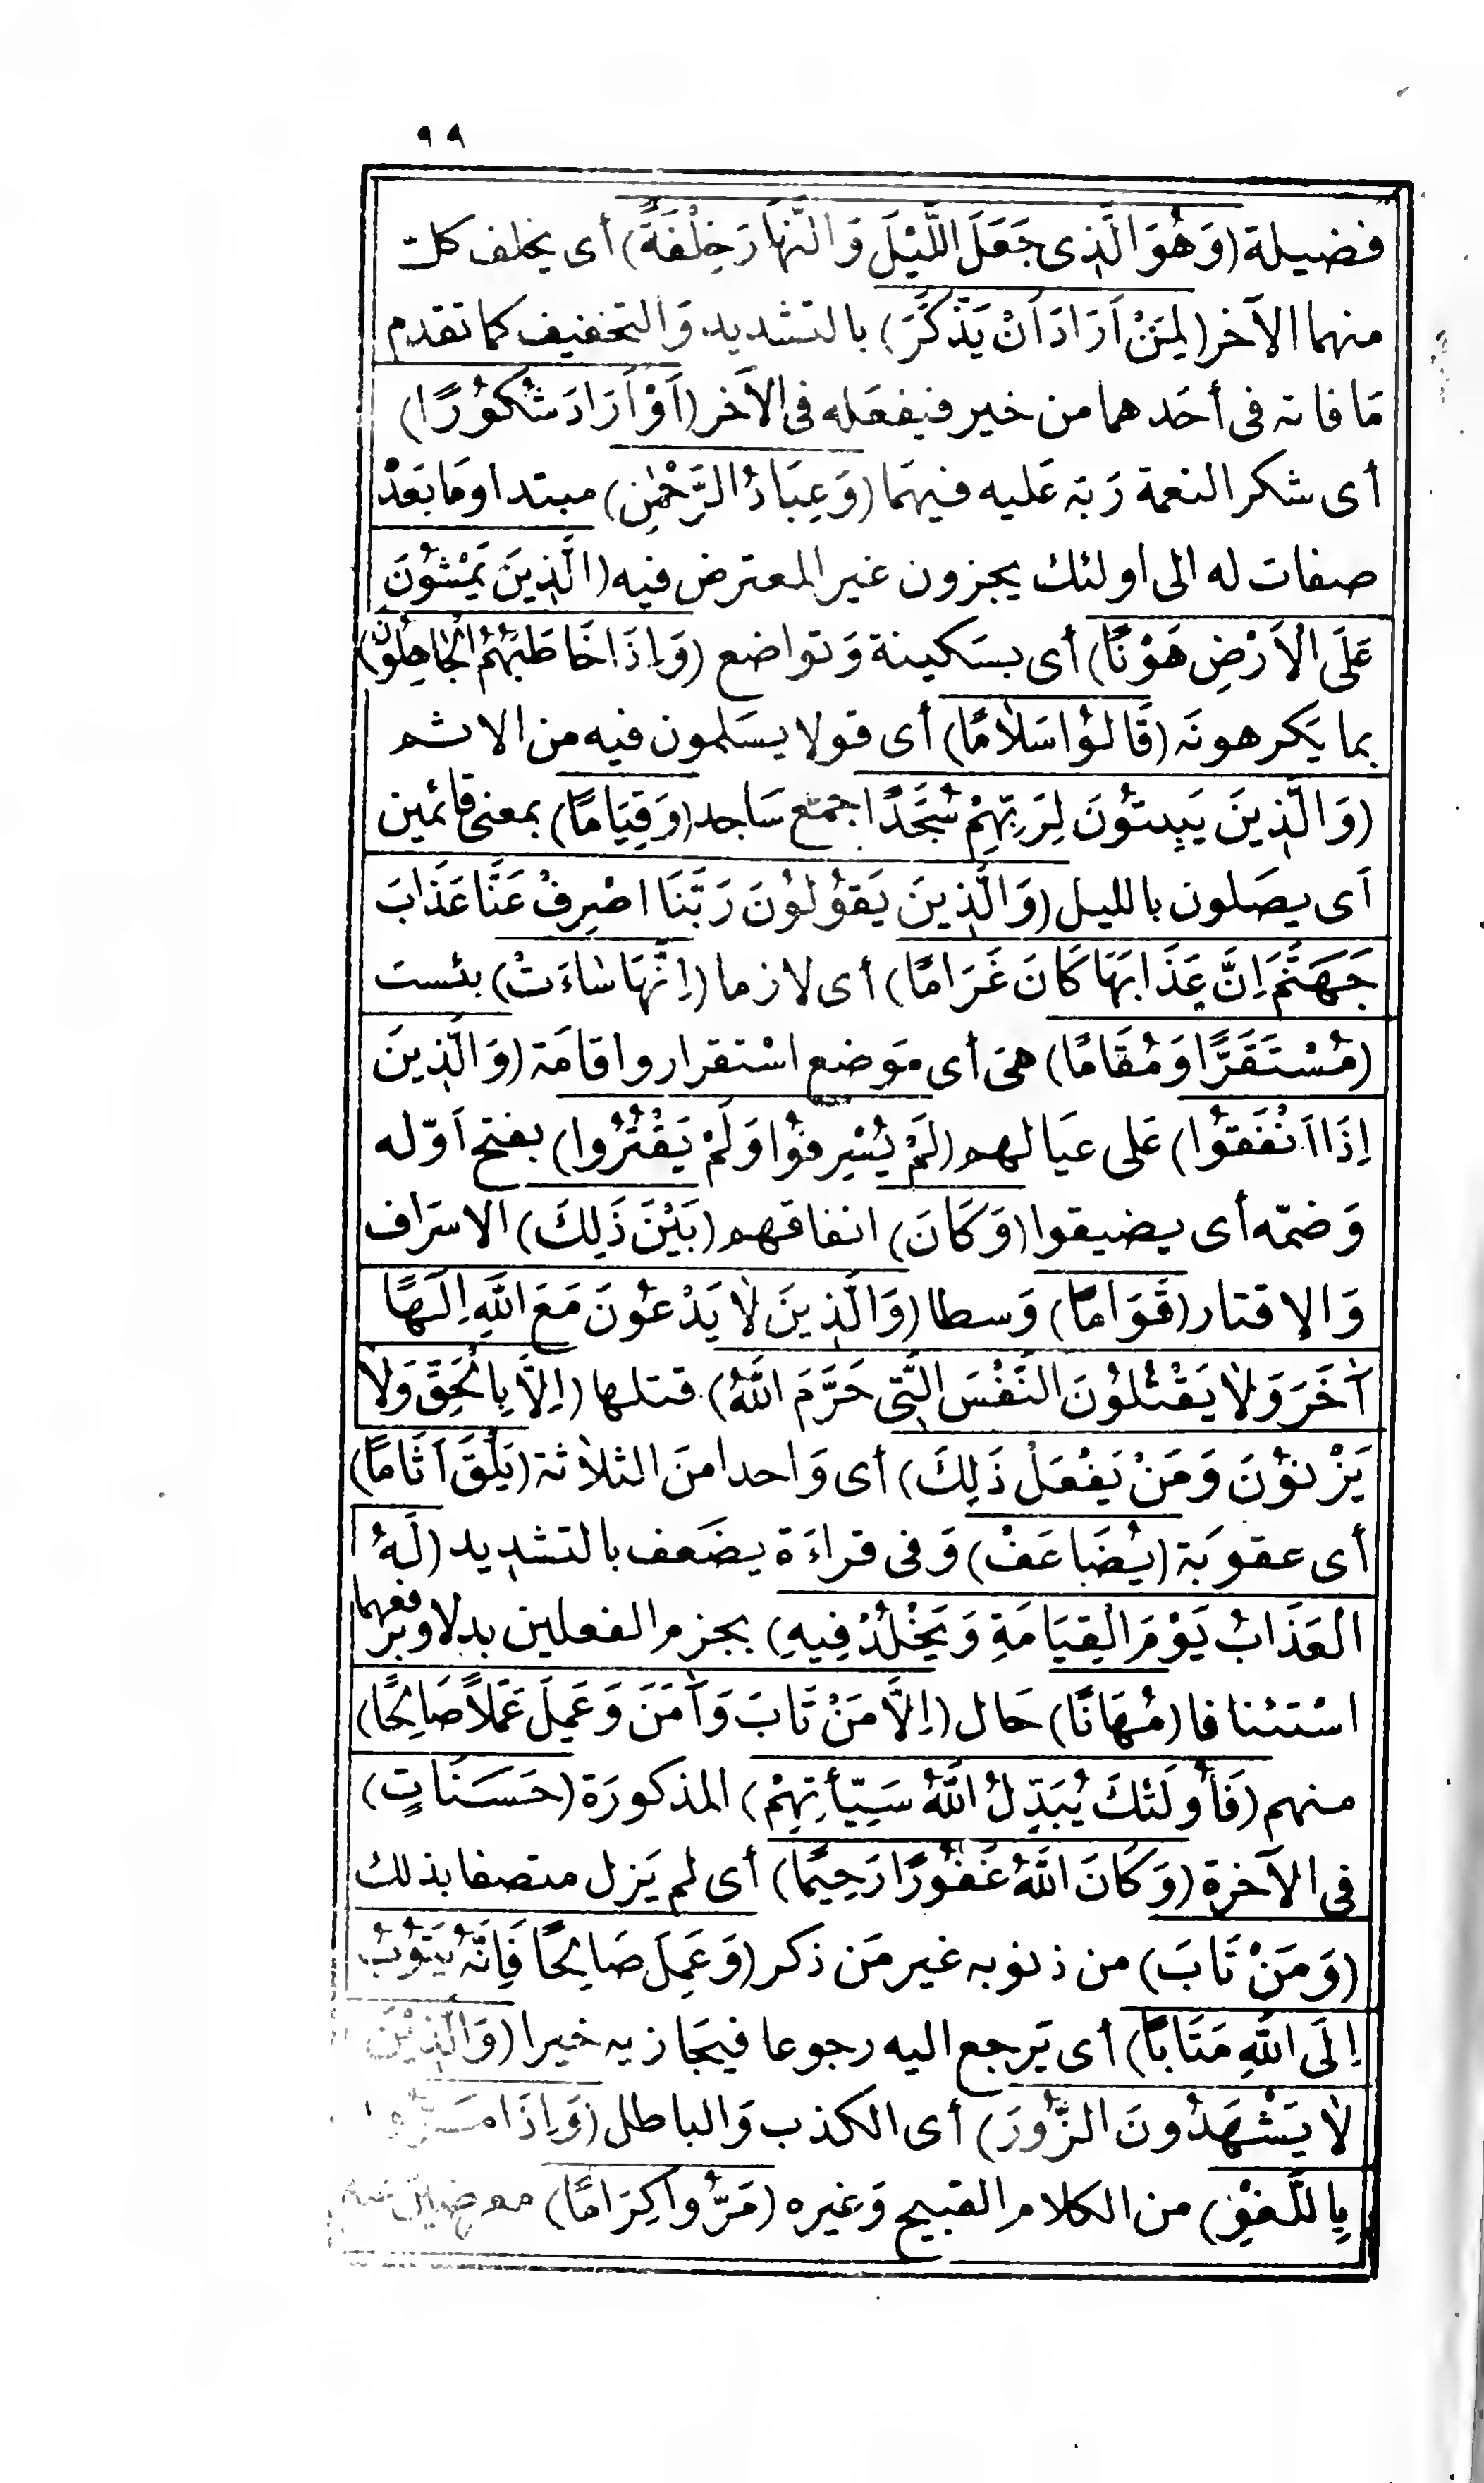 ٩٩
فضيلة (وَهُوَ الَّذِى جَعَلَ اللَّيْلَ وَالنَّهَارَ خِلْفَةً) أى يخلف كل
منهما الآخر (لِمَنْ اَرَادَ اَنْ يَذَّكَّرَ) بالتشديد وَالتخفيف كما تقدم
مَا فاته فى أحَدهما من خير فيفعَله فى الآخر (اَوْ اَرَادَ شُكُوْرًا)
أى شكر النعمة رَبّه عَليه فيهمَا (وَعِبَادُ الرَّحْمٰنِ) مبتدا وَمَا بَعْدْ
صفات له الى اولئك يجزون غير المعترض فيه (الَّذِينَ يَمْشُوْنَ
عَلَى الْاَرْضِ هَوْنًا) أى بسَكينة وَتواضع (وَاِذَا خَاطَبَهُمُ الْجَاهِلُوْنَ)
بما يَكرهونَه (قَالُوْا سَلَامًا) أى قولا يسَلمون فيه من الاثم
(وَالَّذِينَ يَبِيتُوْنَ لِرَبِّهِمْ سُجَّدًا) جمع سَاجد (وَقِيَامًا) بمعنى قائمين
اَى يصَلون بالليل (وَالَّذِينَ يَقُوْلُوْنَ رَبَّنَا اصْرِفْ عَنَّا عَذَابَ
جَهَنَّمَ اِنَّ عَذَابَهَا كَانَ غَرَامًا) أى لازما (اِنَّهَا سَاءَتْ) بئست
(مُسْتَقَرًّا وَمُقَامًا) هىَ أى مَوضع اسْتقرار واقامَة (وَالَّذِينَ
اِذَا اَنْفَقُوْا) عَلى عيَالهم (لَمْ يُسْرِفُوْا وَلَمْ يَقْتُرُوا) بفتح اَوّله
وَضمّه أى يضيقوا (وَكَانَ) انفاقهم (بَيْنَ ذَلِكَ) الاسرَاف
وَالاقتار (قَوَامًا) وَسطا (وَالَّذِينَ لَا يَدْعُوْنَ مَعَ اللهِ اِلَهًا
آخَرَ وَلَا يَقْتُلُوْنَ النَّفْسَ الَّتِى حَرَّمَ اللهُ) قتلها (اِلَّا بِالْحَقِّ وَلَا
يَزْنُوْنَ وَمَنْ يَفْعَلْ ذَلِكَ) أى وَاحدا منَ الثلاثة (يَلْقَ اَثَامًا)
أى عقوبَة (يُضَاعَفْ) وَفى قراءَة يضَعف بالتشديد (لَهُ
الْعَذَابُ يَوْمَ الْقِيَامَةِ وَيَخْلُدْ فِيهِ) بجزم الفعلين بدلا وبرفعهما
اسْتئنافا (مُهَانًا) حَال (اِلَّا مَنْ تَابَ وَآمَنَ وَعَمِلَ عَمَلاً صَالِحًا)
منهم (فَأُولَئِكَ يُبَدِّلُ اللهُ سَيِّأَتِهِمْ) المذكورَة (حَسَنَاتٍ)
فى الآخرة (وَكَانَ اللهُ غَفُوْرًا رَحِيمًا) أى لم يَزل متصفا بذلك
(وَمَنْ تَابَ) من ذنوبه غير مَن ذكر (وَعَمِلَ صَالِحًا فَاِنَّهُ يَتُوْبُ
اِلَى اللهِ مَتَابًا) أى يَرجع اليه رجوعا فيجَازيه خيرا (وَالَّذِيْنَ
لَا يَشْهَدُونَ الزُّورَ) أى الكذب وَالباطل (وَاِذَا مَرُّوا
بِاللَّغْوِ) من الكلام القبيح وَغيره (مَرُّوا كِرَامًا) معرضين عنه